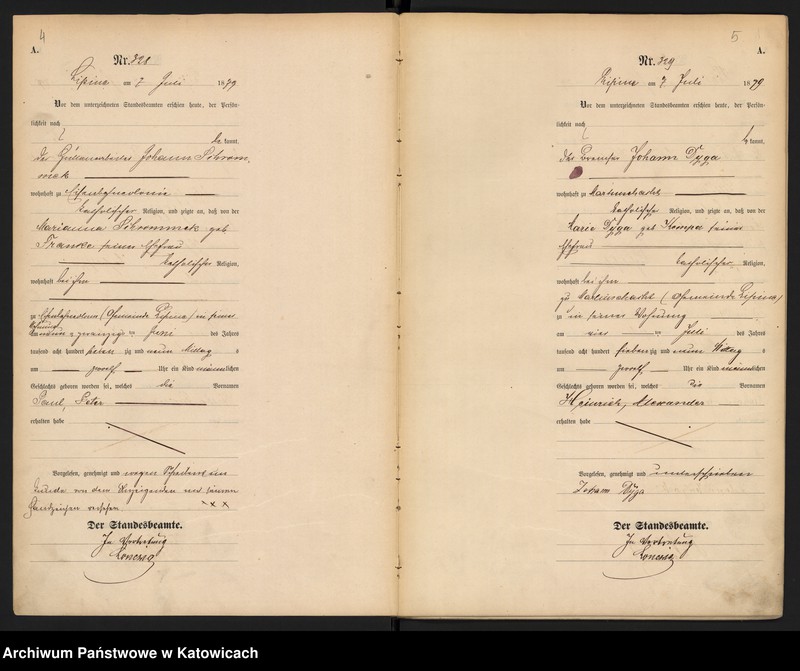 4
A.
Nr. 328
Lipine am 7 Juli 1879
Vor dem unterzeichneten Standesbeamten erschien heute, der Persön-
lichkeit nach
be kannt,
Johann
wohnhaft zu
katholischer Religion, und zeigte an, daß von der
Marianna geb
Franke seiner Ehefrau
katholischer Religion,
wohnhaft bei ihm
zu (Gemeinde Lipine) in seiner
Wohnung
zwanzig ten Juni des Jahres
tausend acht hundert sieben zig und neun Mittag s
um zwoelf Uhr ein Kind männlichen
Geschlechts geboren worden sei, welches die Vornamen
Paul, Peter
erhalten habe
Vorgelesen, genehmigt und wegen
von dem und seinen
Handzeichen versehen. xxx
Der Standesbeamte.
In Vertretung
5
A.
Nr. 329
Lipine am 7 Juli 1879
Vor dem unterzeichneten Standesbeamten erschien heute, der Persön-
lichkeit nach
be kannt,
der Johann Dyga
wohnhaft zu Martinschacht
katholischer Religion, und zeigte an, daß von der
Marie Dyga geb Kompa seiner
Ehefrau
katholischer Religion,
wohnhaft bei ihm
zu Martinschacht (Gemeinde Lipine)
zu in seiner Wohnung
am vier ten Juli des Jahres
tausend acht hundert siebenzig und neun Mittag s
um zwoelf Uhr ein Kind männlichen
Geschlechts geboren worden sei, welches die Vornamen
Heinrich, Alexander
erhalten habe
Vorgelesen, genehmigt und unterschrieben
Johann Dyga
Der Standesbeamte.
In Vertretung
Archiwum Państwowe w Katowicach